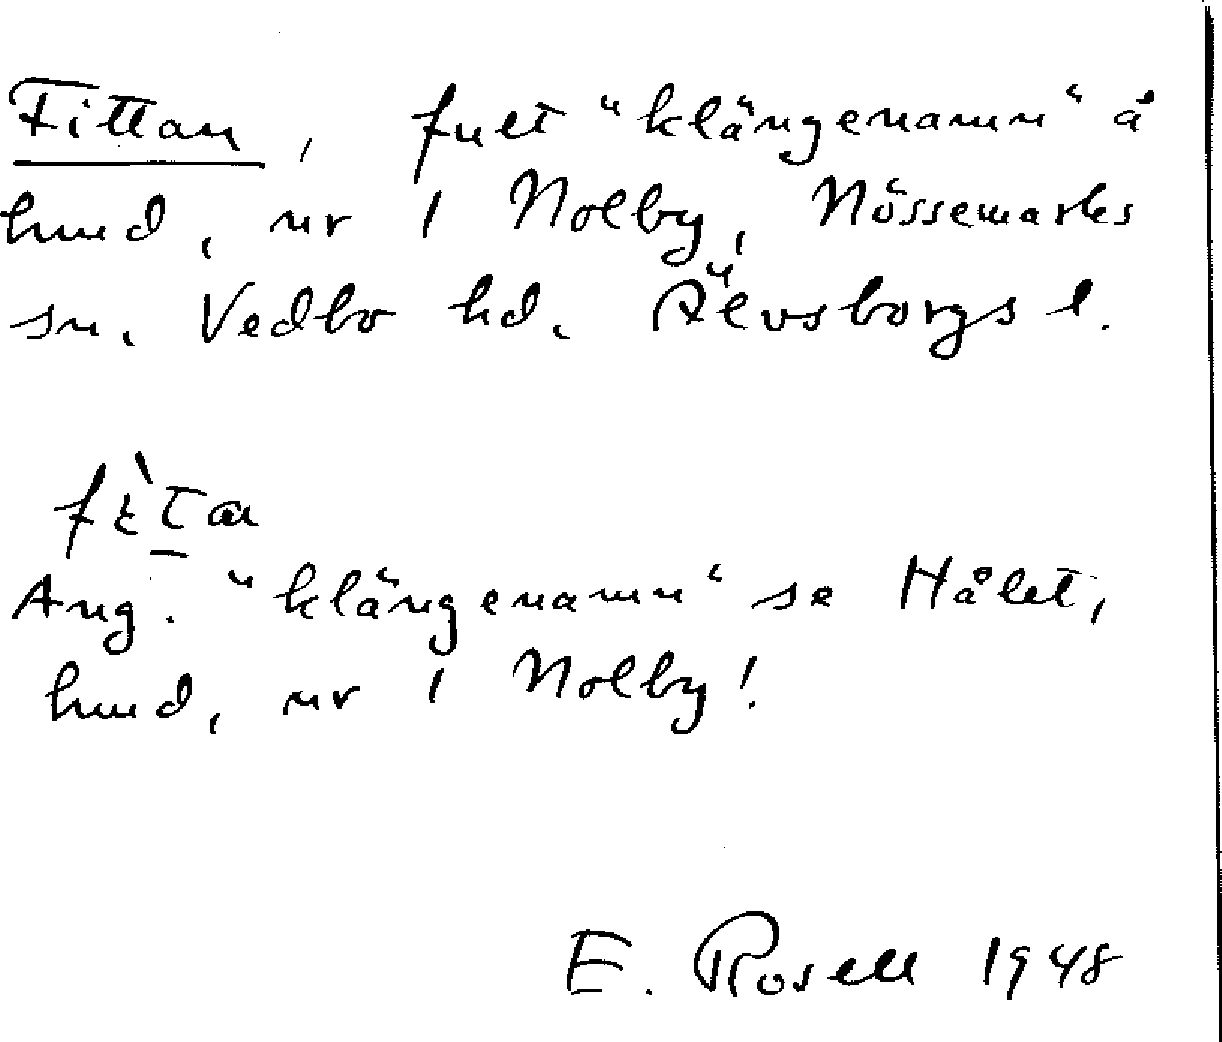 Fittan, fult "klängenamn" å
hund, nr 1 Nolby, Nössemarks
sn. Vedbo hd. Älvsborgs l.
Ang. "klängenamn" se Hålet,
hund, nr 1 Nolby!
E. Rosell 1948